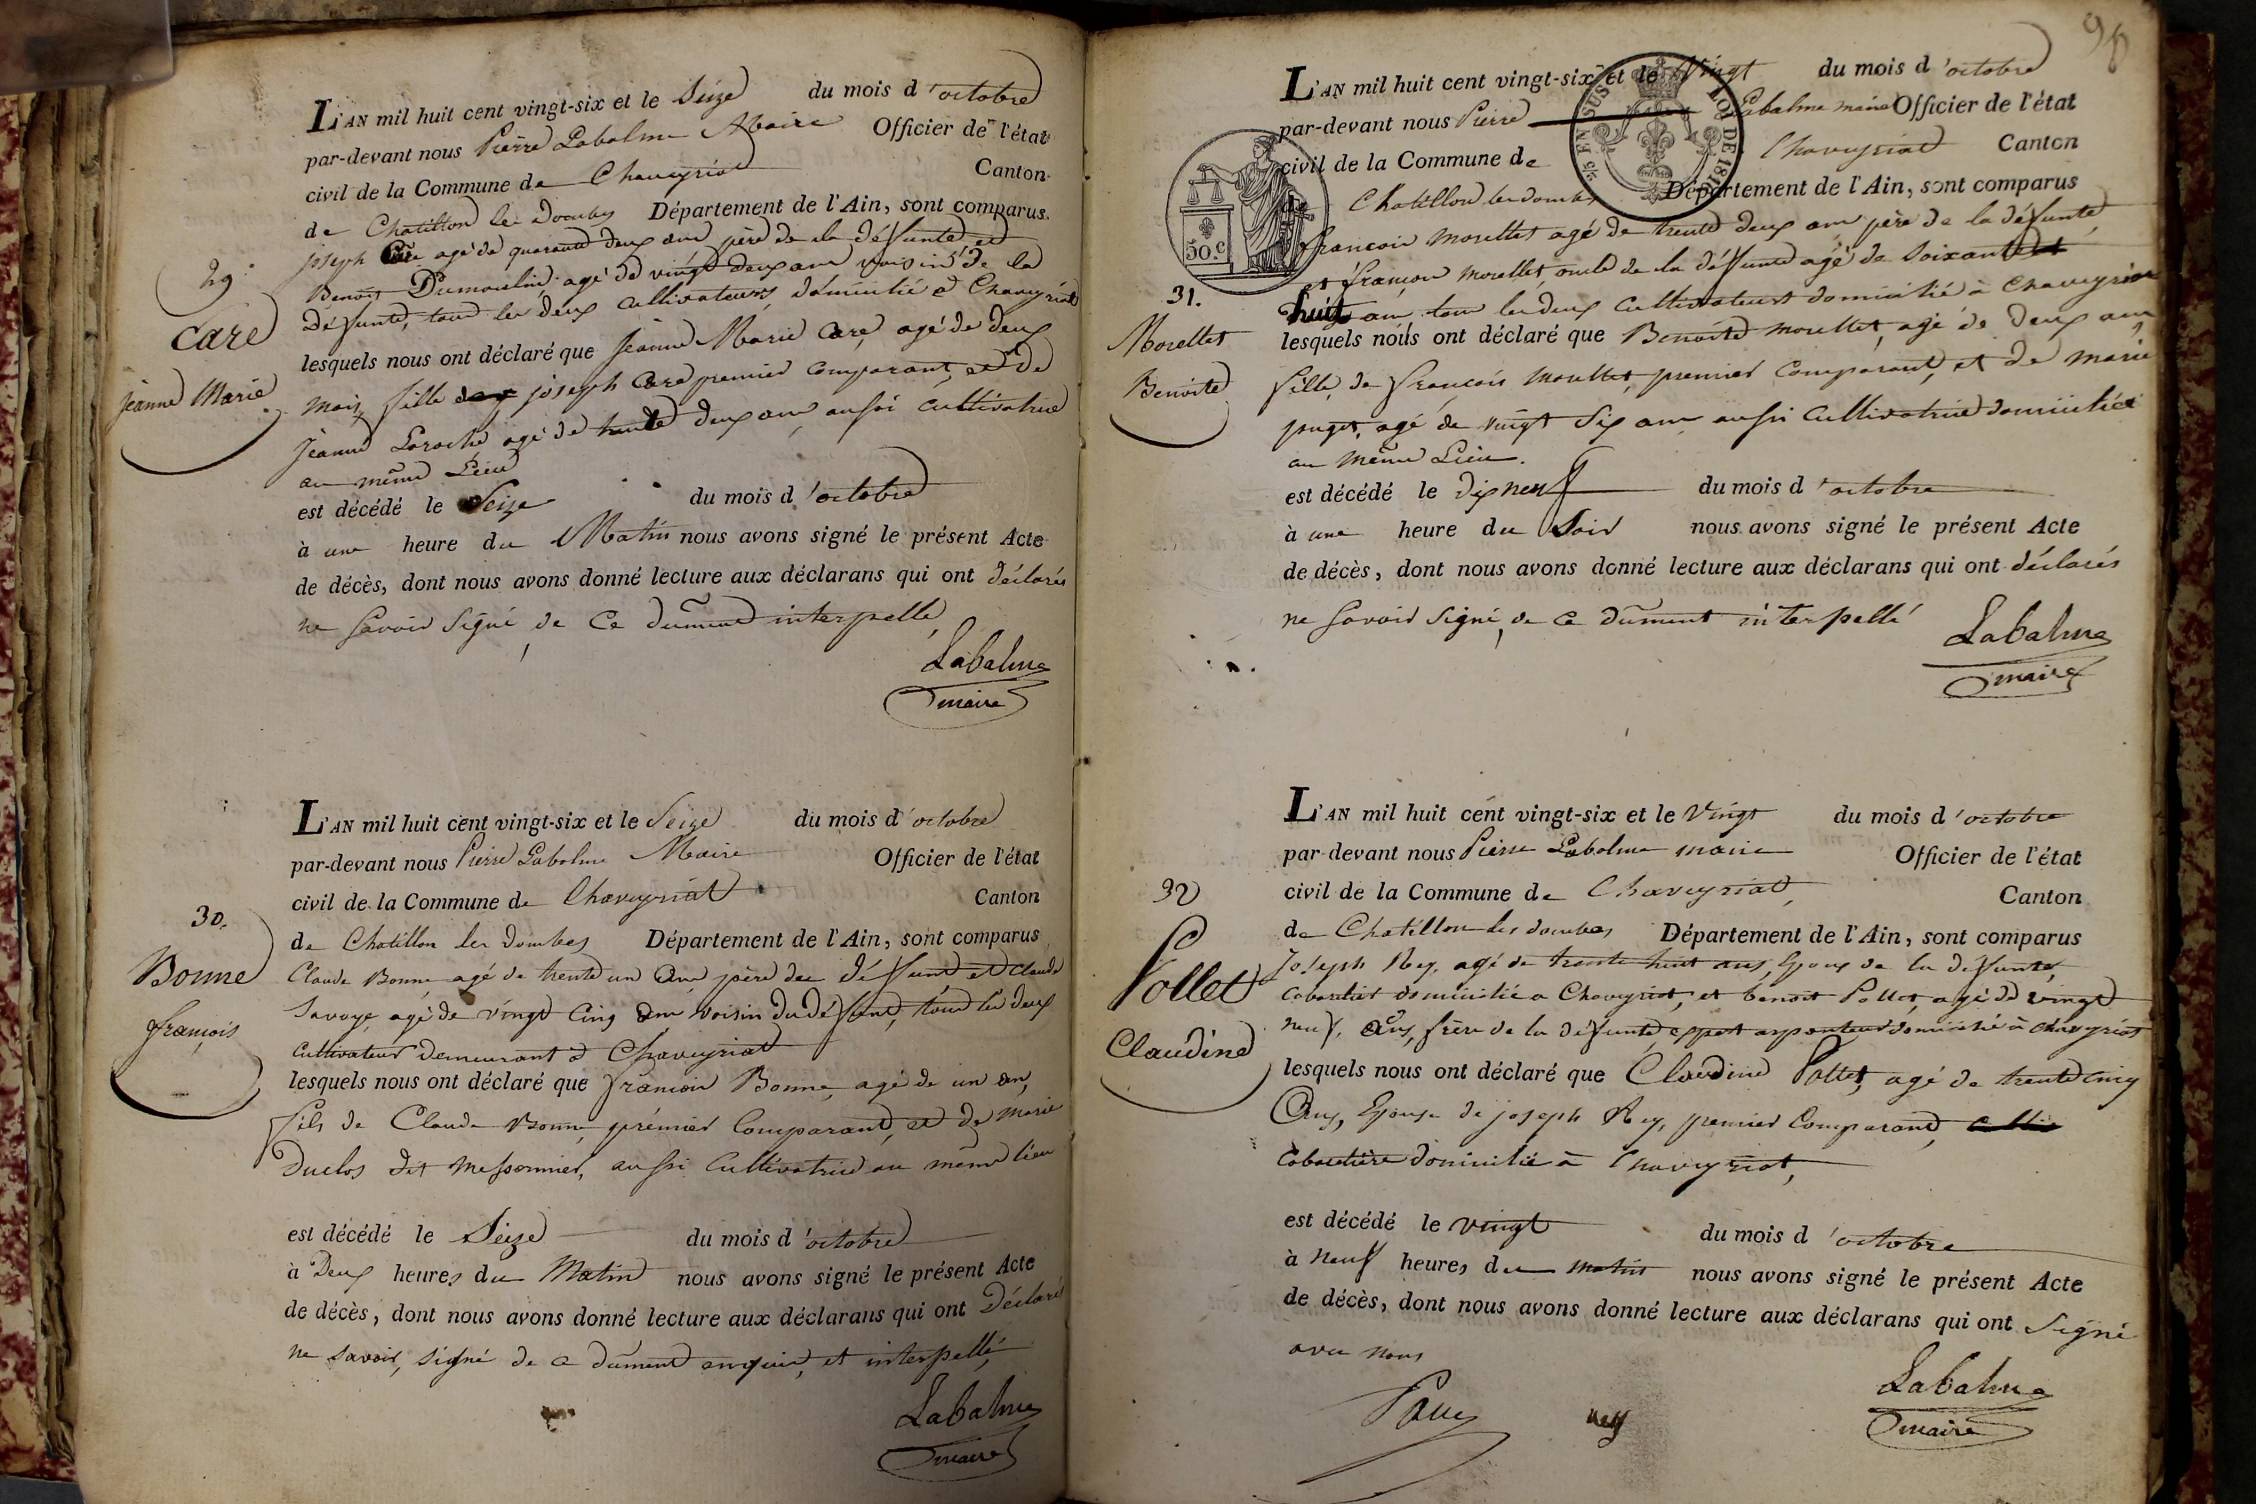 29.
Care
jeanne Marie
L'AN mil huit cent vingt-six et le Seize du mois d'octobre
par-devant nous Pierre Labalme Maire Officier de l'état
civil de la Commune de Chaveyriat Canton
de Chatillon les Dombes Département de l'Ain, sont comparus
joseph Care agé de quarante deux ans père de la défunte et
Benoit Dumoulin agé de vingt deux ans voisin de la
défunte, tous les deux cultivateurs, domicilié à Chaveyriat
lesquels nous ont déclaré que jeanne Marie Care, agé de deux
mois fille joseph Care premier comparant, et de
jeanne Laroche agé de trente deux ans aussi cultivatrice
au même Lieu
est décédé le Seize du mois d'octobre
à une heure du Matin nous avons signé le présent Acte
de décès, dont nous avons donné lecture aux déclarans qui ont déclarés
ne savoir signé, de ce dument interpellé
Labalme
maire
30.
Bonne
françois
L'AN mil huit cent vingt-six et le Seize du mois d'octobre
par-devant nous Pierre Labalme Maire Officier de l'état
civil de la Commune de Chaveyriat Canton
de Chatillon les dombes Département de l'Ain, sont comparus
Claude Bonne agé de trente un ans père du défunt et Claude
Savoye, agé de vingt cinq ans voisin du défunt, tous les deux
cultivateur demeurant à Chaveyriat
lesquels nous ont déclaré que françois Bonne, agé de un an,
fils de Claude Bonne, prémier Comparant, et de Marie
Duclos dit Messonnier, aussi Cultivatrice au même lieu
est décédé le Seize du mois d'octobre
à Deux heures du Matin nous avons signé le présent Acte
de décès, dont nous avons donné lecture aux déclarans qui ont Déclaré
ne savoir, signé de ce dument enquis, et interpellé,
Labalme
maire
96
2/5 EN SUS LOI DE 1816
50.C
31.
Morellet
Benoite
L'AN mil huit cent vingt-six et le Vingt du mois d'octobre
par-devant nous Pierre Labalme maire Officier de l'état
civil de la Commune de Chaveyriat Canton
de Chatillon les dombes Département de l'Ain, sont comparus
françois Morellet agé de trente deux ans père de la défunte,
et françois Morellet, oncle de la défunte agé de soixante et
huit ans tous les deux Cultivateurs domicilié à Chaveyriat
lesquels nous ont déclaré que Benoite morellet, agé de deux ans,
fille, de françois Morellet, premier Comparant, et de marie
puget, agé de vingt six ans aussi Cultivatrice domiciliée
au même Lieu.
est décédé le dix neuf du mois d'octobre
à une heure du Soir nous avons signé le présent Acte
de décès, dont nous avons donné lecture aux déclarans qui ont déclarés
ne savoir signé, de ce dument interpellé
Labalme
maire
32
Pollet
Claudine
L'AN mil huit cent vingt-six et le Vingt du mois d'octobre
par-devant nous Pierre Labalme maire Officier de l'état
civil de la Commune de Chaveyriat, Canton
de Chatillon les dombes Département de l'Ain, sont comparus
Joseph Rey, agé de trente huit ans, Epoux de la défunte,
cabaretier domicilié a Chaveyriat, et benoit Pollet, agé de vingt
neuf, ans, frère de la défunte, arpenteur domicilié à chaveyriat
lesquels nous ont déclaré que Claudine Pollet, agé de trente cinq
Ans, Epouse de joseph Rey, premier Comparant,
Cabaretière domicilié à Chaveyriat,
est décédé le vingt du mois d'octobre
à neuf heures du matin nous avons signé le présent Acte
de décès, dont nous avons donné lecture aux déclarans qui ont Signé
avec nous
Rey
Labalme
maire